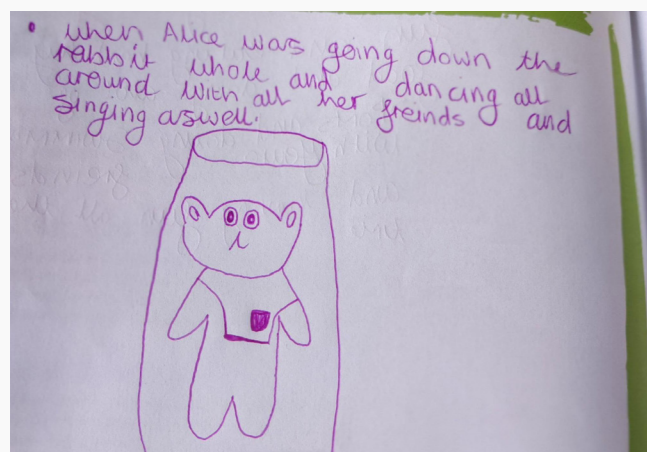 • when Alice was going down the
rabbit whole and dancing all
around with all her freinds and
singing aswell.